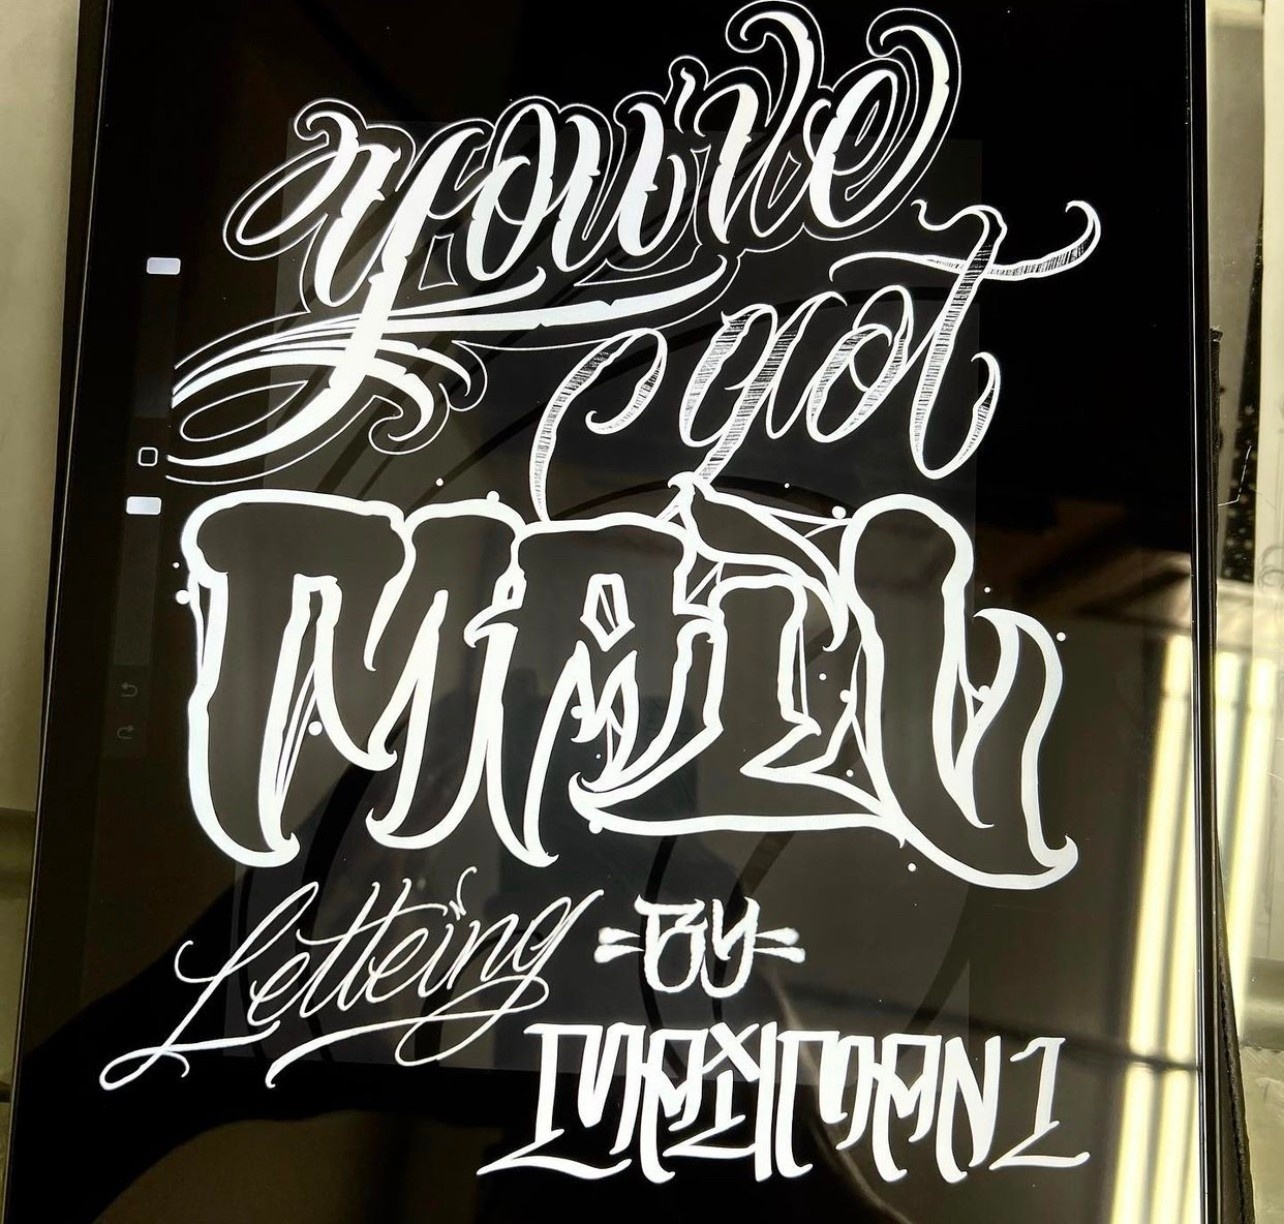 you've
got
MAIL
Letteing BY
MAXIMANI